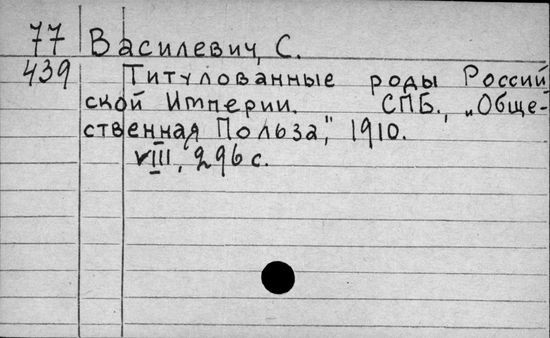 77 Василевич, С.
439 Титулованные роды Россий
ской Империи. СПБ., „Обще-
ственная Польза", 1910.
VIII, 296 с.